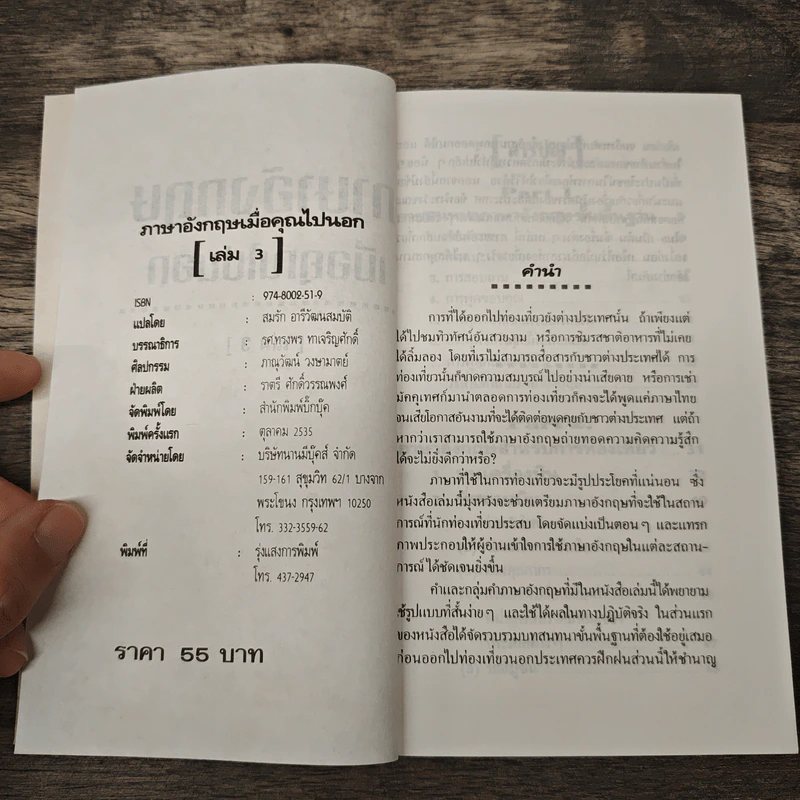 ภาษาอังกฤษเมื่อคุณไปนอก
[ เล่ม 3 ]
ISBN : 974-8002-51-9
แปลโดย : สมรัก อารีวัฒนสมบัติ
บรรณาธิการ : รศ.ทรงพร ทาเจริญศักดิ์
ศิลปกรรม : ภาณุวัฒน์ วงษามาตย์
ฝ่ายผลิต : ราตรี ศักดิ์วรรณพงศ์
จัดพิมพ์โดย : สำนักพิมพ์บิ๊กบุ๊ค
พิมพ์ครั้งแรก : ตุลาคม 2535
จัดจำหน่ายโดย : บริษัทนานมีบุ๊คส์ จำกัด
159-161 สุขุมวิท 62/1 บางจาก
พระโขนง กรุงเทพฯ 10250
โทร. 332-3559-62
พิมพ์ที่ : รุ่งแสงการพิมพ์
โทร. 437-2947
ราคา 55 บาท
คำนำ
การที่ได้ออกไปท่องเที่ยวยังต่างประเทศนั้น ถ้าเพียงแต่
ได้ไปชมทิวทัศน์อันสวยงาม หรือการชิมรสชาติอาหารที่ไม่เคย
ได้ลิ้มลอง โดยที่เราไม่สามารถสื่อสารกับชาวต่างประเทศได้ การ
ท่องเที่ยวนั้นก็ขาดความสมบูรณ์ไปอย่างน่าเสียดาย หรือการเช่า
มัคคุเทศก์มานำตลอดการท่องเที่ยวก็คงจะได้พูดแค่ภาษาไทย
จนเสียโอกาสอันงามที่จะได้ติดต่อพูดคุยกับชาวต่างประเทศ แต่ถ้า
หากว่าเราสามารถใช้ภาษาอังกฤษถ่ายทอดความคิดความรู้สึก
ได้จะไม่ยิ่งดีกว่าหรือ?
ภาษาที่ใช้ในการท่องเที่ยวจะมีรูปประโยคที่แน่นอน ซึ่ง
หนังสือเล่มนี้มุ่งหวังจะช่วยเตรียมภาษาอังกฤษที่จะใช้ในสถาน
การณ์ที่นักท่องเที่ยวประสบ โดยจัดแบ่งเป็นตอน ๆ และแทรก
ภาพประกอบให้ผู้อ่านเข้าใจการใช้ภาษาอังกฤษในแต่ละสถาน-
การณ์ ได้ชัดเจนยิ่งขึ้น
คำและกลุ่มคำภาษาอังกฤษที่มีในหนังสือเล่มนี้ได้พยายาม
ใช้รูปแบบที่สั้นง่าย ๆ และใช้ได้ผลในทางปฏิบัติจริง ในส่วนแรก
ของหนังสือได้จัดรวบรวมบทสนทนาขั้นพื้นฐานที่ต้องใช้อยู่เสมอ
ก่อนออกไปท่องเที่ยวนอกประเทศควรฝึกฝนส่วนนี้ให้ชำนาญ